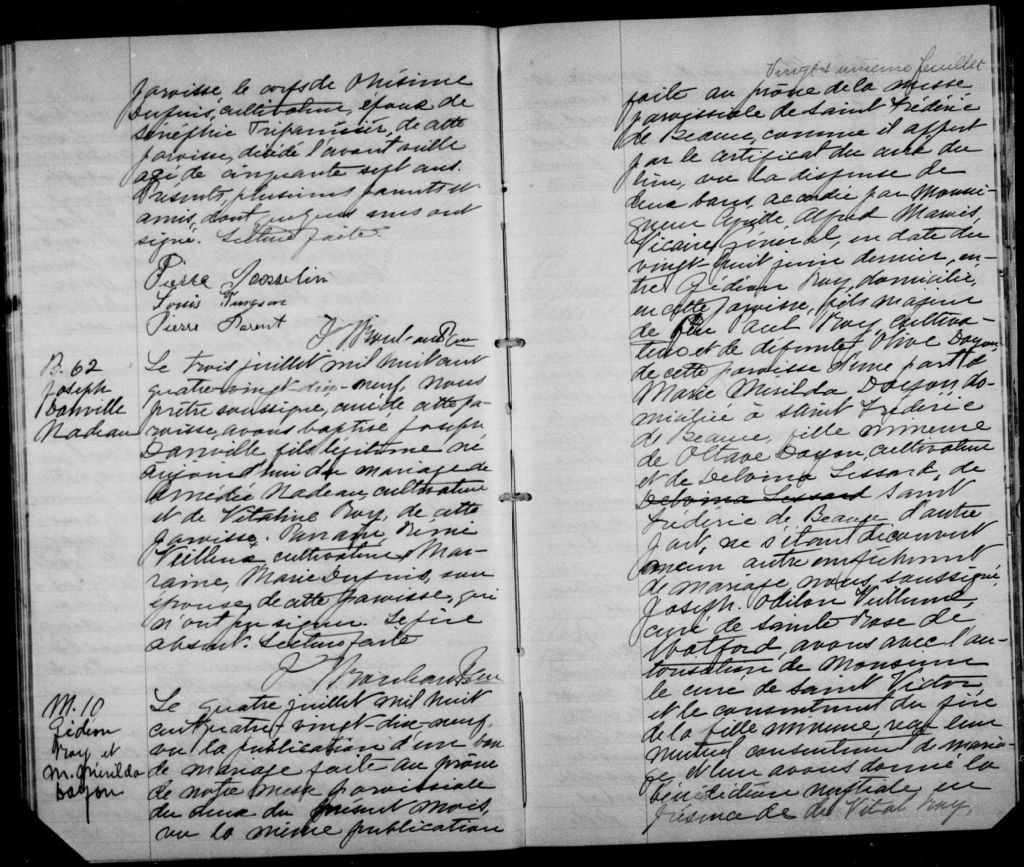 paroisse le corps de Onésime
Dupuis, cultivateur, époux de
Séraphie Trépannier, de cette
paroisse, décédé l'avant veille
agé de cinquante sept ans.
Présents, plusieurs parents et
amis, dont quelques uns ont
signé. Lecture faite.
Pierre Josselin
Louis
Pierre Parent
B. 62
Joseph
Danville
Nadeau
Le trois juillet mil huit cent
quatre-vingt-dix-neuf, nous
prêtre soussigné, curé de cette pa-
roisse, avons baptisé Joseph
Danville fils légitime né
aujourd'hui du mariage de
Amédée Nadeau, cultivateur
et de Vitaline Roy, de cette
paroisse. Parrain, Rémi
Veilleux cultivateur, Mar-
raine, Marie Dupuis, son
épouse, de cette paroisse, qui
n'ont pu signer. Le père
absent. Lecture faite
M. 10
Gédéon
Roy et
M. Mérilda
Doyon
Le quatre juillet mil huit
cent quatre-vingt-dix-neuf,
vu la publication d'un ban
de mariage faite au prône
de notre messe paroissiale
du deux du présent mois,
vu la même publication
Vingt et unième feuillet
faite au prône de la messe
paroissiale de Saint Frédéric
de Beauce, comme il appert
par le certificat du curé du
lieu, vu la dispense de
deux bans, accordée par Monsei-
gneur Cyrille Alfred Marois,
Vicaire général, en date du
vingt-huit juin dernier, en-
tre Gédéon Roy, domicilié,
en cette paroisse, fils majeur
de feu Paul Roy, cultiva-
teur et de défunte Olive Doyon,
de cette paroisse d'une part et
Marie Mérilda Doyon, do-
miciliée à Saint Frédéric
de Beauce, fille mineure
de Octave Doyon, cultivateur
et de Delvina Lessard, de
Delvina Lessard Saint
Frédéric de Beauce, d'autre
part, ne s'étant découvert
aucun autre empêchement
de mariage, nous, soussigné,
Joseph Odilon Vieilleux,
curé de Sainte Rose de
Watford, avons avec l'au-
torisation de Monsieur
le curé de Saint Victor,
et le consentement du père
de la fille mineure, reçu leur
mutuel consentement de maria-
ge, et leur avons donné la
bénédiction nuptiale en
présence de de Vital Roy,